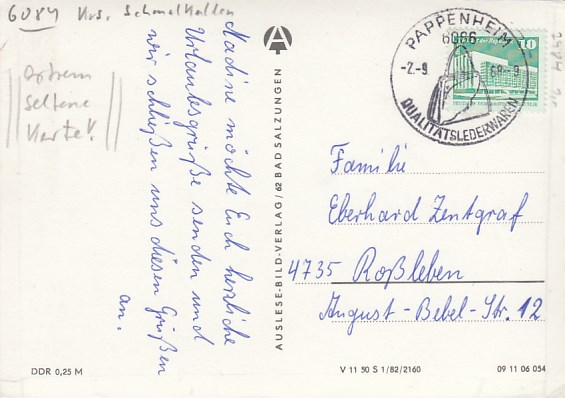 6084 Krs. Schmalkalden
Extrem
seltene
Karte!
Nadine möchte Euch herzliche
Urlaubsgrüße senden und
wir schließen uns diesen Grüßen
an.
AUSLESE-BILD-VERLAG/62 BAD SALZUNGEN
PAPPENHEIM
6086
-2.-9. -9
QUALITÄTSLEDERWAREN
10
Familie
Eberhard Zentgraf
4735 Roßleben
August-Bebel-Str. 12
DDR 0,25 M
V 11 50 S 1/82/2160
09 11 06 054